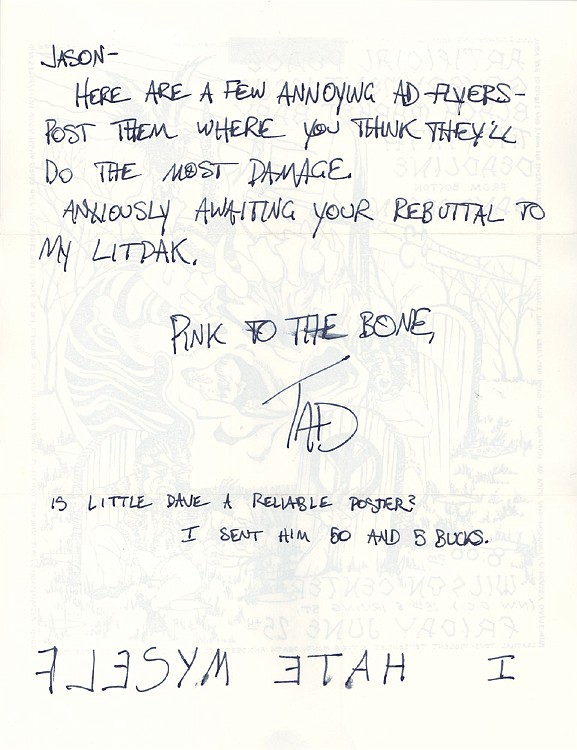 JASON-
HERE ARE A FEW ANNOYING AD-FLYERS-
POST THEM WHERE YOU THINK THEY'LL
DO THE MOST DAMAGE.
ANXIOUSLY AWAITING YOUR REBUTTAL TO
MY LITDAK.
PINK TO THE BONE,
TAD
IS LITTLE DAVE A RELIABLE POSTER?
I SENT HIM 50 AND 5 BUCKS.
I HATE MYSELF